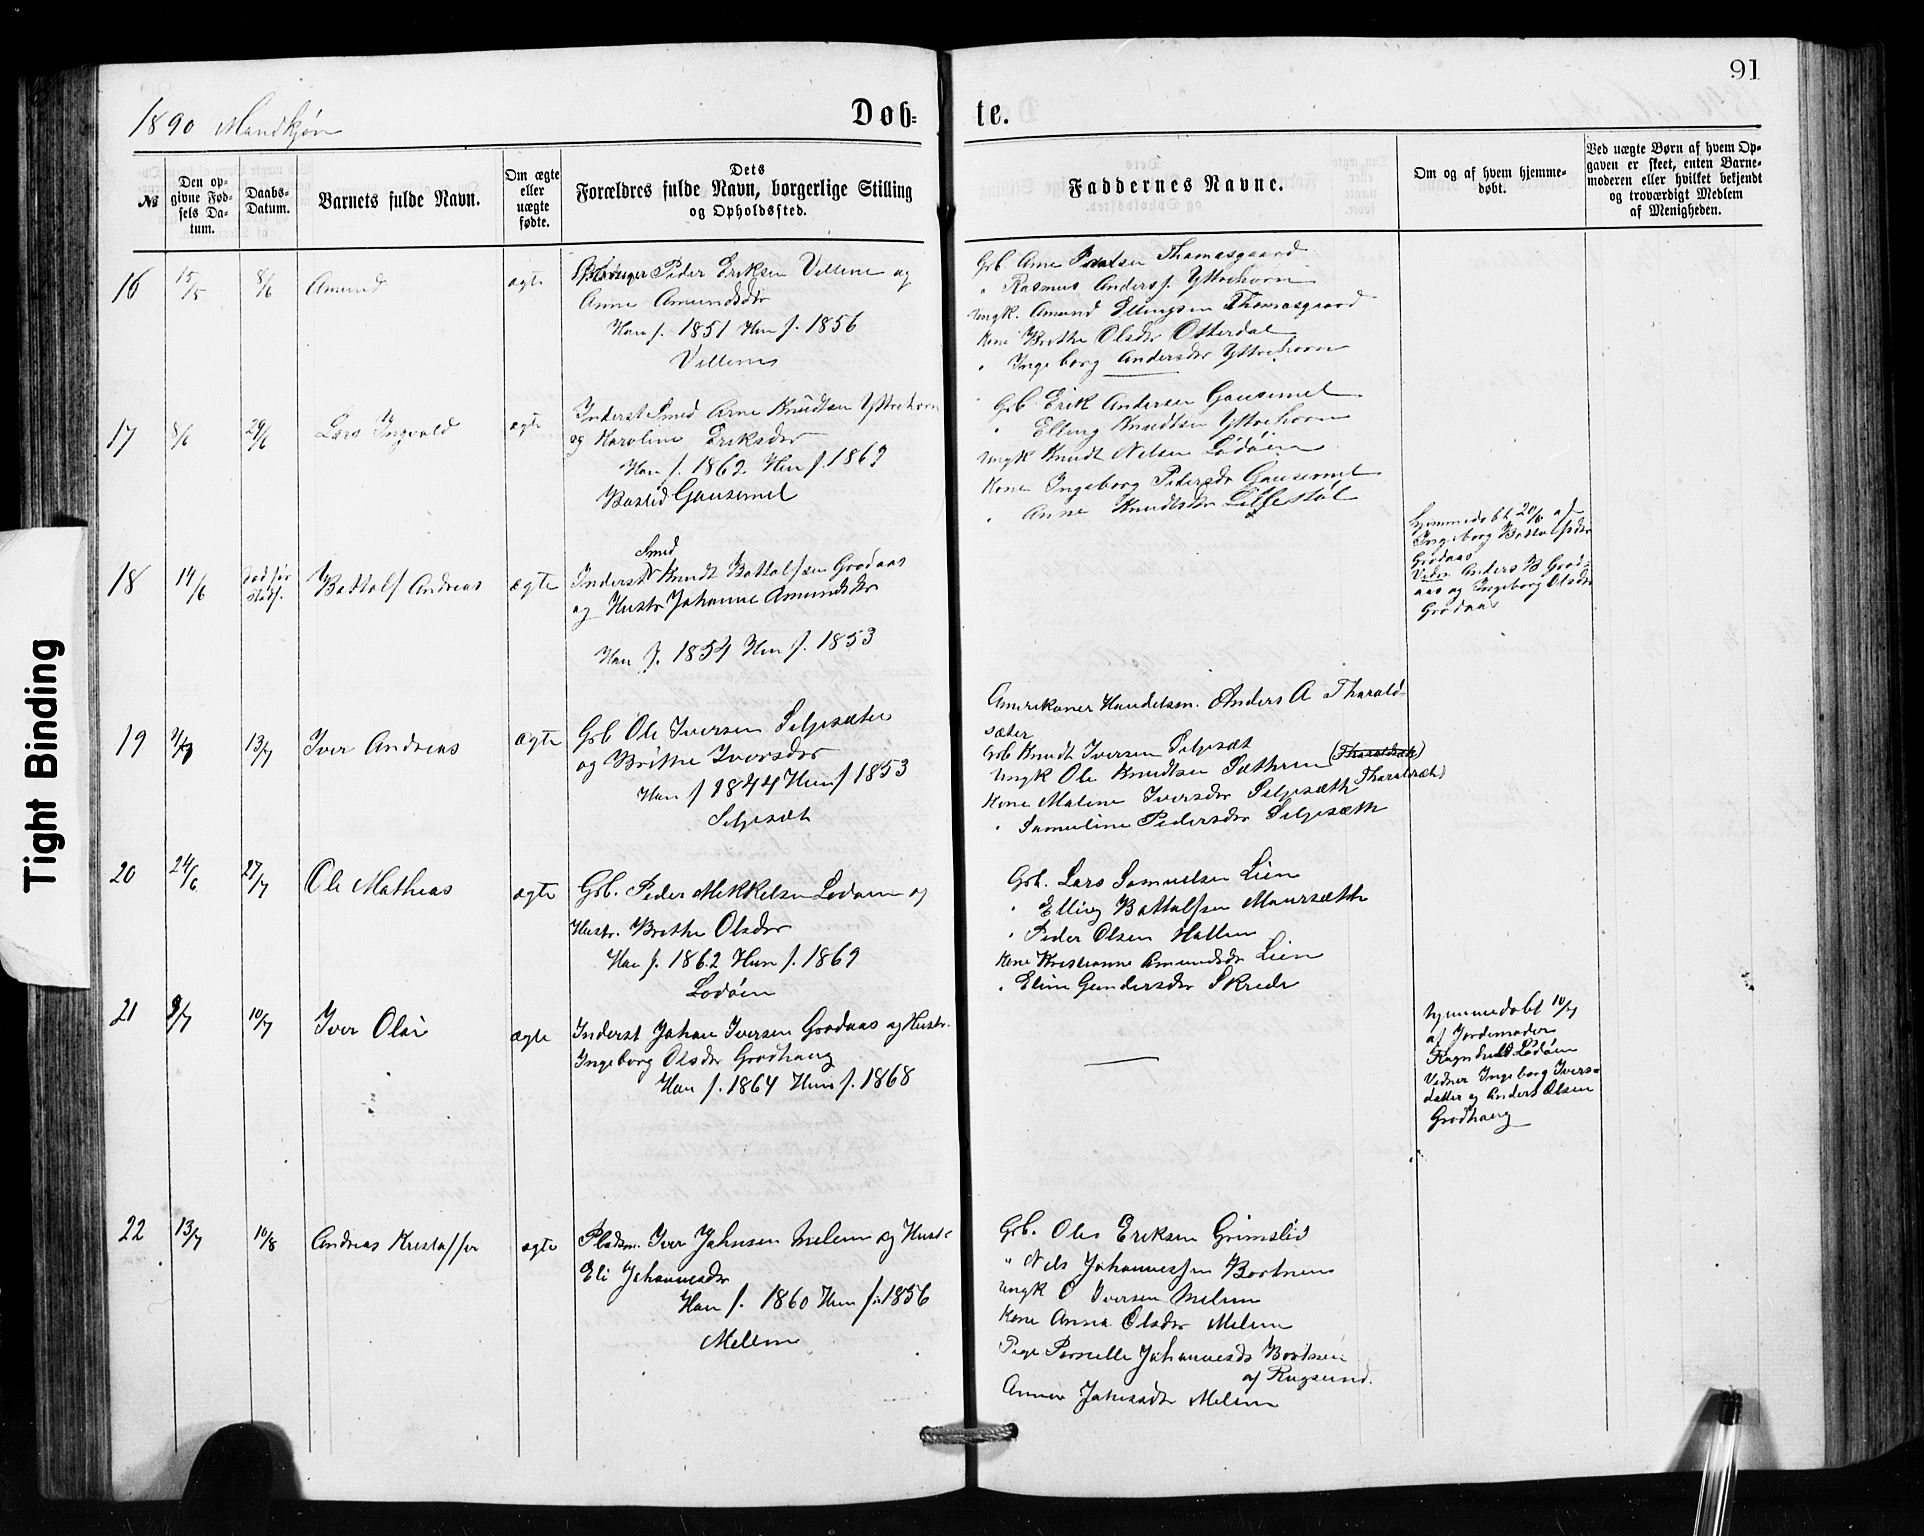 91
1890 Mandkjøn
Døb- te.
№
Den op-
givne Fød-
sels Da-
tum.
Daabs-
Datum.
Barnets fulde Navn.
Om ægte
eller
uægte
fødte.
Dets
Forældres fulde Navn, borgerlige Stilling
og Opholdssted.
Faddernes Navne.
Om og af hvem hjemme-
døbt.
Ved uægte Børn af hvem Op-
gaven er skeet, enten Barne-
moderen eller hvilket bekjendt
og troværdigt Medlem
af Menigheden.
16
15/5
8/6
Amund
ægte
Peder Eriksen Vellene og
Anne Amundsdtr
Han f. 1851 Hun f. 1856
Vellenes
Grb. Arne Thomasgaard
" Rasmus Anders. Yttrehorn
Ungk. Amund Ellingsen Thomasgaard
Kone Brithe Olsdtr Otterdal
" Ingeborg Andersdtr Yttrehorn
17
8/6
29/6
Lars Ingvald
ægte
Inderst Smed Arne Knudtsen Yttrehorn
og Karoline Eriksdtr
Han f. 1862. Hun f. 1869
Bosted Gausemel
Grb Erik Andersen Gausemel
" Elling Knudtsen Yttrehorn
Ungk Knudt Nelsen Lødøen
Kone Ingeborg Pedersdtr Gausemel
" Anne Knudtsdtr Lillestøl
18
14/6
død før
stadf.
Battolf Andreas
ægte
Smed
Inderst Knudt Battolfsen Grodaas
og Hustr Johanne Amundsdtr
Han f. 1854 Hun f. 1853
Hjemmedøbt 20/6 af
Ingeborg Battolfsdtr
Grodaas
Vidn. Anders B Grod-
aas og Ingeborg Olsdtr
Grodaas
19
13/7
Iver Andreas
ægte
Grb Ole Iversen Seljesæter
og Brithe Iversdtr
Han f 1844 Hun f 1853
Seljesæt
Amerikaner Handelsm. Anders A Tharald-
sæter
Grb Knudt Iversen Seljesæt
Ungk Ole Knudtsen Sæthren (Tharaldsæt)
Kone Malene Iversdtr Seljesæth Tharaldsæt)
" Samueline Pedersdtr Seljesæth
20
24/6
27/7
Ole Mathias
ægte
Grb. Peder Mekkelsen Lodøen og
Hustr. Brithe Olsdtr
Han f. 1862 Hun f. 1869
Lodøen
Grb. Lars Samuelsen Lien
" Elling Battolfsen Maursæth
" Peder Olsen Hallen
Kone Kristianne Amundsdtr Lien
" Eline Gundersdtr Skrede
21
9/7
10/7
Iver Olai
ægte
Inderst Johan Iversen Grodaas og Hustr.
Ingeborg Olsdtr Grodhaug
Han f. 1864 Hun f. 1868
Hjemmedøbt 10/7
af Jordemoder
Ragnhild Lødøen
Vidner Ingeborg Ivers-
datter og Anders Olsen
Grodhaug
22
13/7
10/8
Andreas Kristoffer
ægte
Pladsm. Iver Johnsen Melem og Hustr
Eli Johannesdtr
Han f. 1860 Hun f. 1856
Mellem
Grb. Ole Eriksen Grimslid
" Nils Johannessen Bortnen
Ungk O Iversen Melem
Kone Anna Olsdtr Melem
Pige Pernelle Johannesdtr Bortnen
af Rugsund.
Anne Melem
Tight Binding